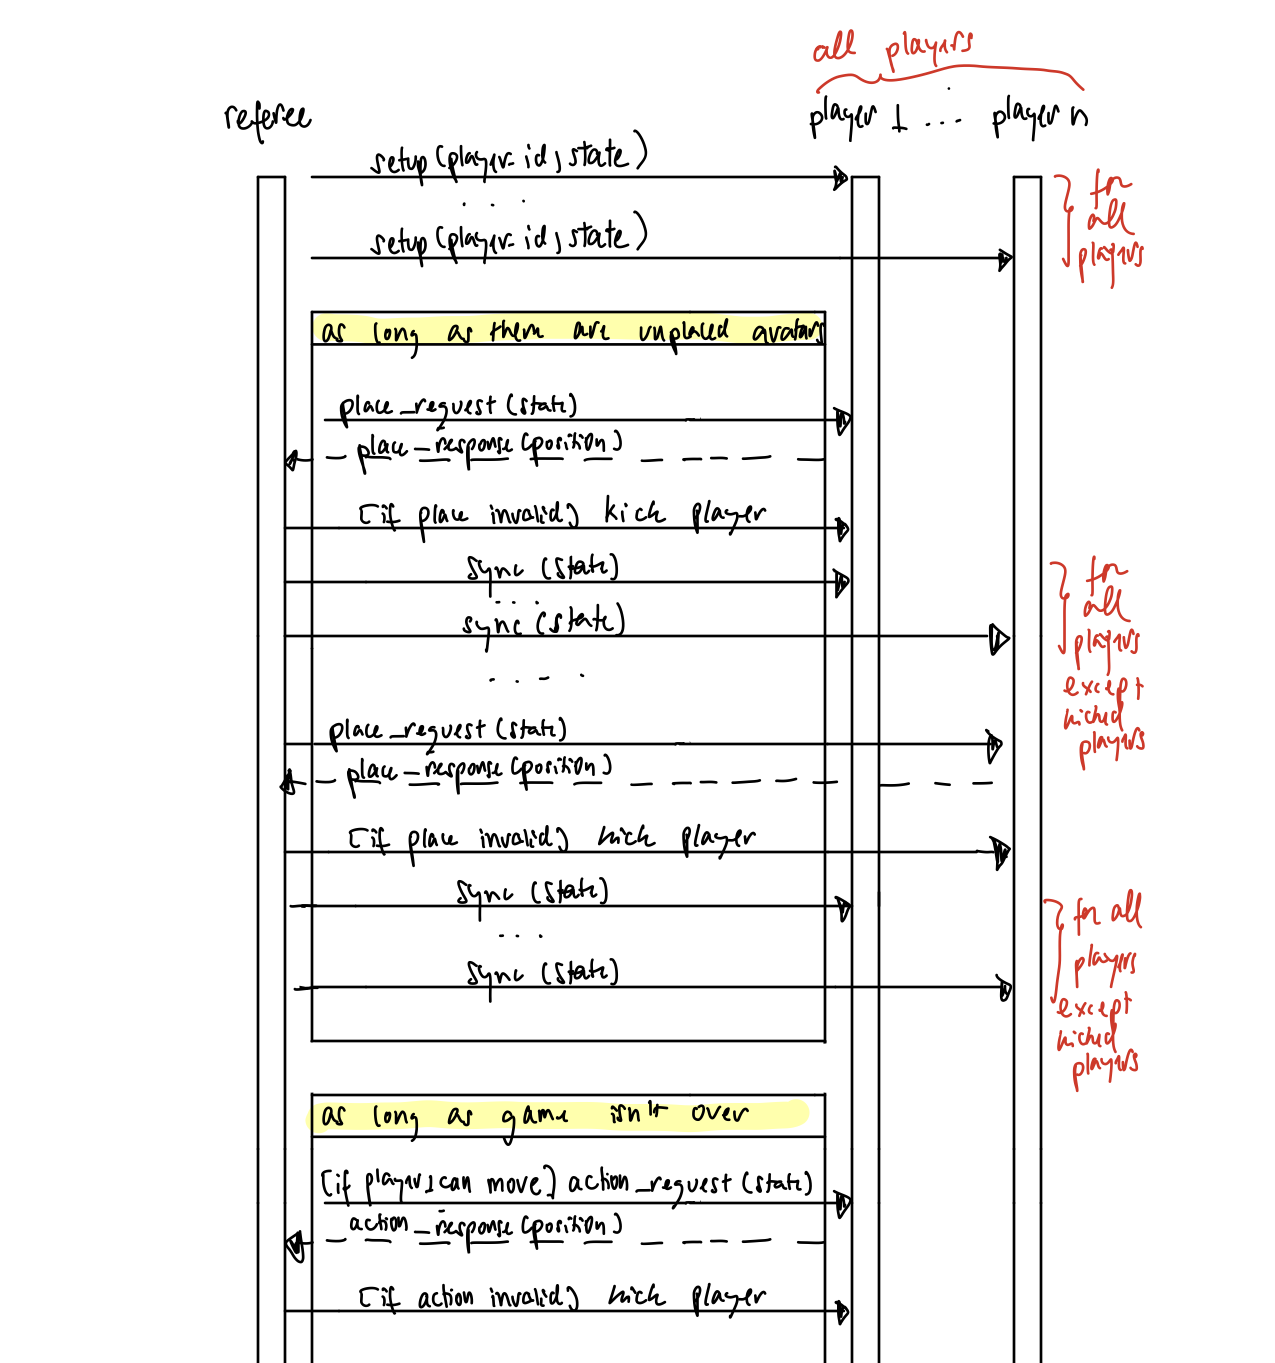 all players
referee
player 1 ... player n
setup(player-id, state)
. . .
setup(player-id, state)
for
all
players
as long as them are unplaced avatars
place_request(state)
place_response(position)
[if place invalid] kick player
sync (state)
. . .
sync (state)
for
all
players
except
kicked
players
. . . .
place_request(state)
place_response(position)
[if place invalid] kick player
sync (state)
. . .
sync (state)
for all
players
except
kicked
players
as long as game isn't over
[if player 1 can move] action_request(state)
action_response(position)
[if action invalid] kick player